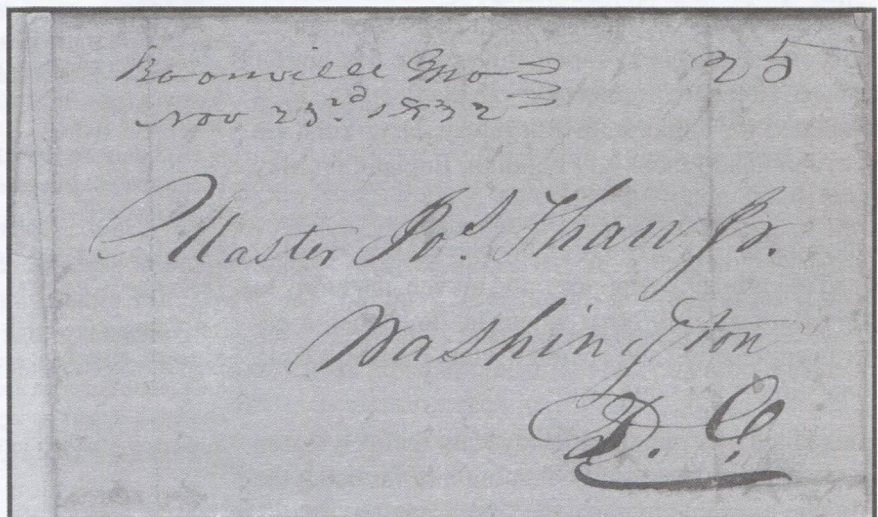 Boonville Mo 25
Nov 23rd 1832
Master Jos. Thaw Jr.
Washington
D. C.